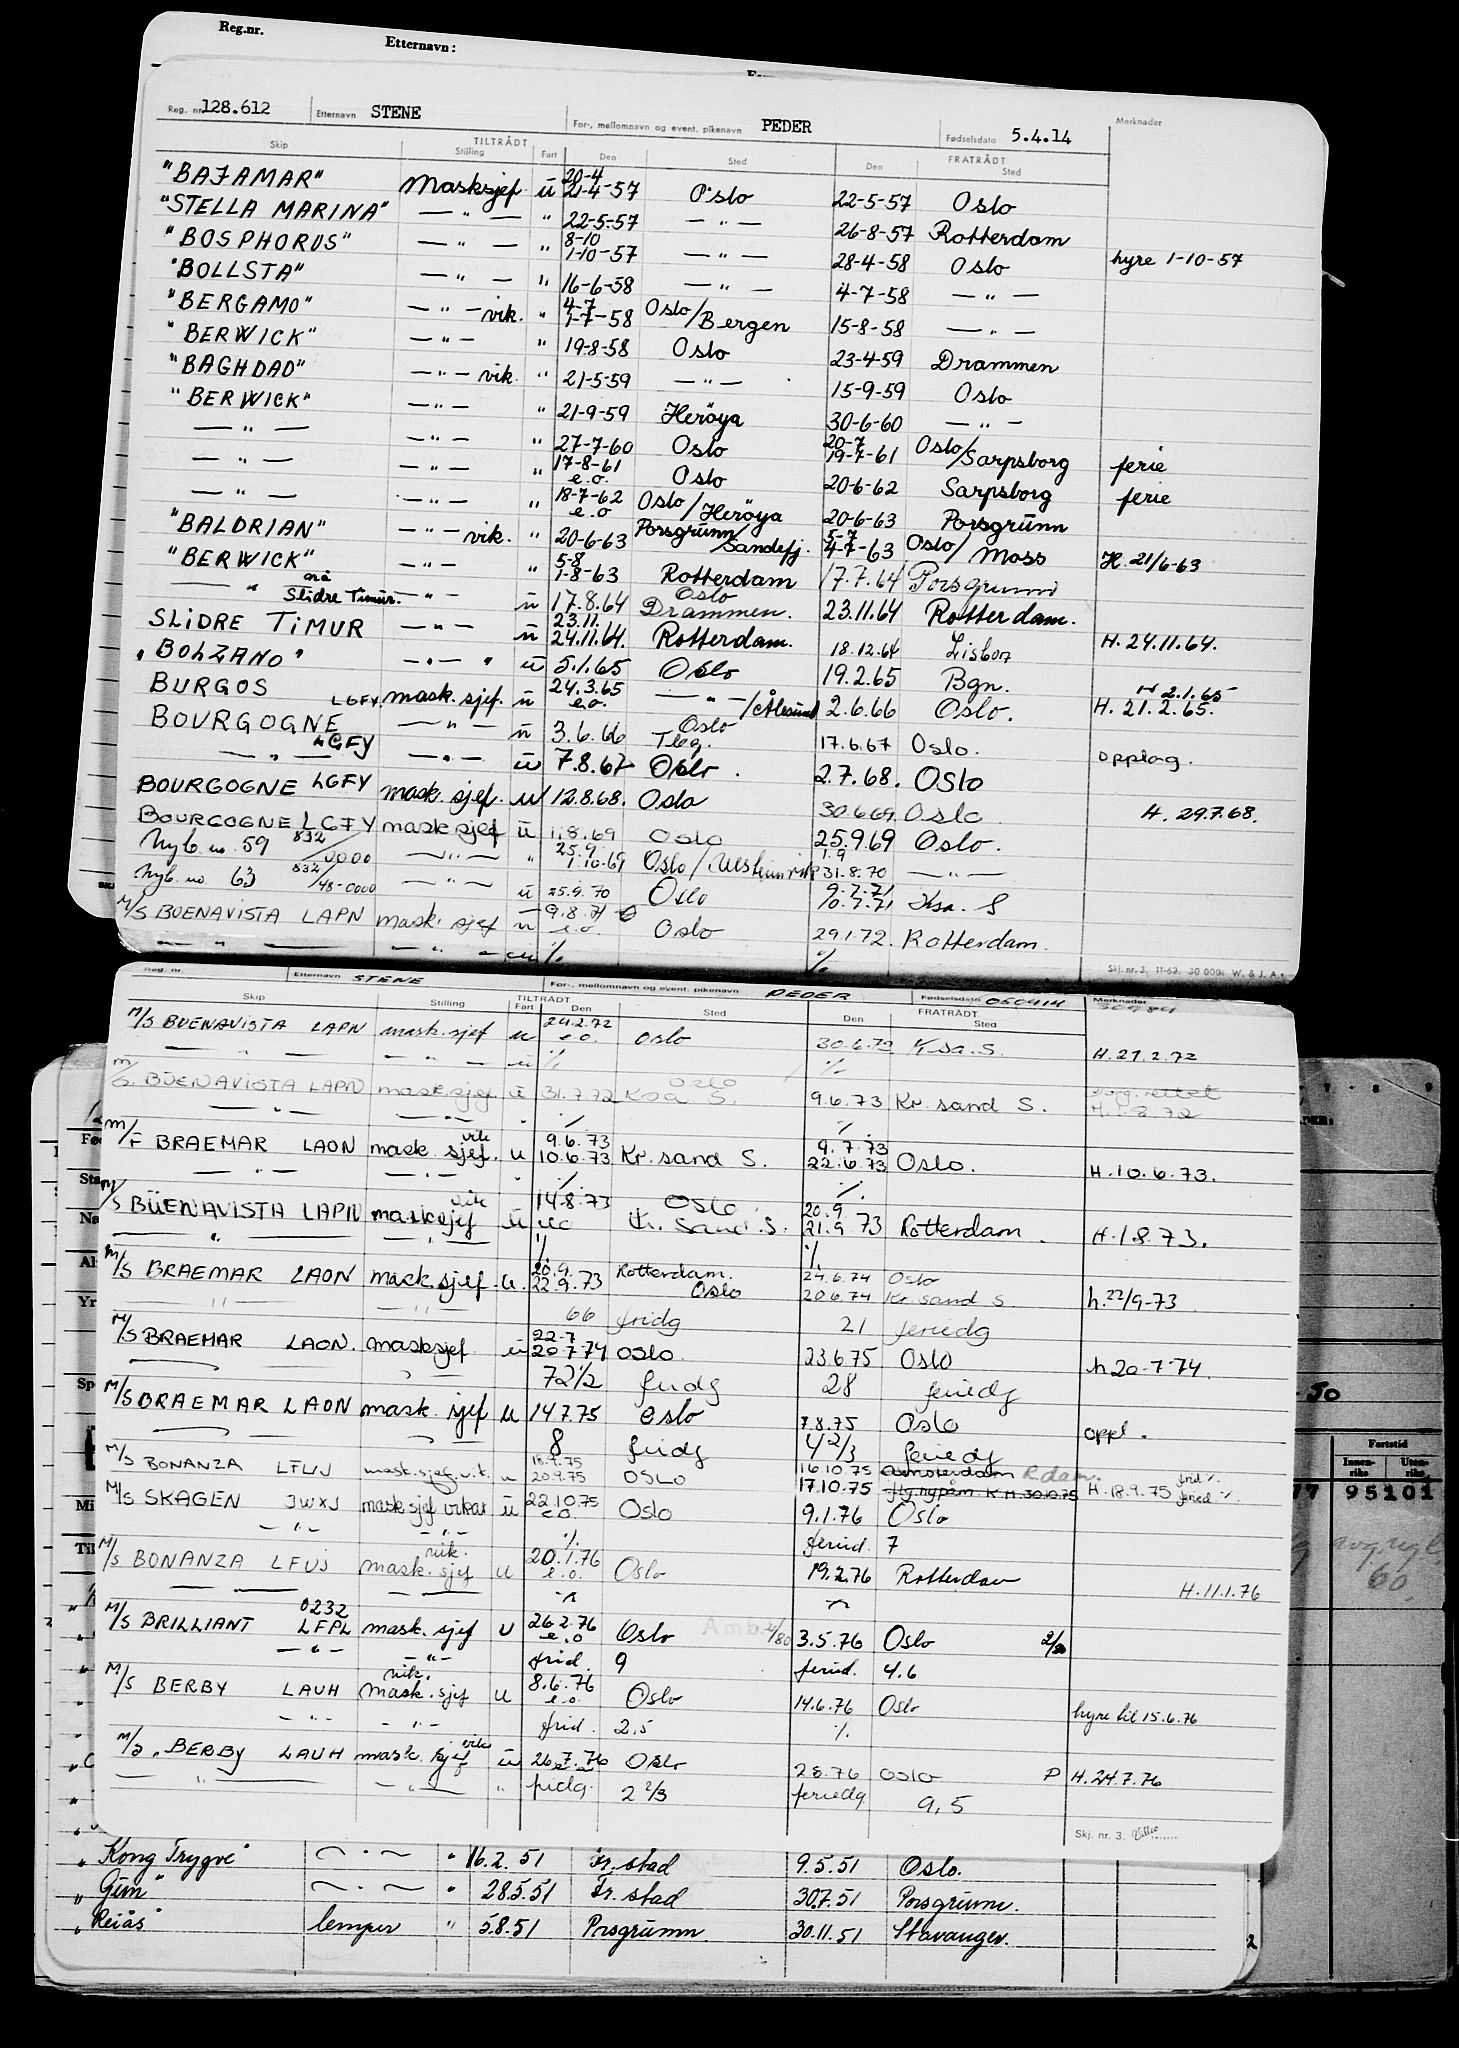 Reg.nr. Etternavn:
Reg. nr. 128.612 Etternavn STENE For-, mellomnavn og event. pikenavn PEDER Fødselsdato 5.4.14 Merknader
Skip TILTRÅDT Stilling Fart Den Sted Den FRATRÅDT Sted
"BAJAMAR" Masksjef ü 20-4 21-4-57 Oslo 22-5-57 Oslo
"STELLA MARINA" — " — " 22-5-57 — " — 26-8-57 Rotterdam
"BOSPHORUS" — " — " 8-10 1-10-57 — " — 28-4-58 Oslo hyre 1-10-57
"BOLLSTA" — " — " 16-6-58 — " — 4-7-58 — " —
"BERGAMO" — " — vik. " 4-7 1-7-58 Oslo/Bergen 15-8-58 — " —
"BERWICK" — " — " 19-8-58 Oslo 23-4-59 Drammen
"BAGHDAD" — " — vik. " 21-5-59 — " — 15-9-59 Oslo
"BERWICK" — " — " 21-9-59 Herøya 30-6-60 — " —
— " — — " — " 27-7-60 Oslo 20-7 19-7-61 Oslo/Sarpsborg ferie
— " — — " — " 17-8-61 e.o. Oslo 20-6-62 Sarpsborg ferie
— " — — " — " 18-7-62 e.o Oslo/Herøya 20-6-63 Porsgrünn
"BALDRIAN" — " — vik. " 20-6-63 Porsgrünn/Sandefj. 5-7 4-7-63 Oslo/Moss H. 21/6-63
"BERWICK" — " — " 5-8 1-8-63 Rotterdam 17.7.64 Porsgrunn
— " nå Slidre Timur. — " — ü 17.8.64 Oslo Drammen. 23.11.64 Rotterdam.
SLIDRE TIMUR — " — ü 23.11. 24.11.64. Rotterdam. 18.12.64 Lisbon H. 24.11.64.
"BOLZANO" — " — " ü 5.1.65 Oslo 19.2.65 Bgn. H 2.1.65
BURGOS LGFY mask. sjef. ü 24.3.65 e.o. — " —/Ålesund 2.6.66 Oslo. H. 21.2.65.
BOURGOGNE LGFY — " — ü 3.6.66 Oslo Tbg. 17.6.67 Oslo. opplag.
— " — — " — ü 7.8.67 Oslo. 2.7.68. Oslo
BOURGOGNE LGFY mask. sjef. u 12.8.68. Oslo 30.6.69 Oslo H. 29.7.68.
BOURGOGNE LGFY mask sjef ü 1.8.69 Oslo 25.9.69 Oslo.
Nyb. no 59 832/0000 — " — " 25.9. 1.10.69 Oslo/Ulsteinvik 1.9 31.8.70 — " —
Nyb. no 63 832/48-0000 — " — ü 25.9.70 Oslo 9.7.71 10.7.71 Ksa. S
M/S BUENAVISTA LAPN mask. sjef ü 9.8.71 e.o. Oslo 29.1.72. Rotterdam.
— " — " — — " — ü % %
Skj. nr. 3. 11-62. 30 000. W. & J. A.s
Reg. nr. Etternavn STENE For-, mellomnavn og event. pikenavn PEDER Fødselsdato 050414 Merknader
Skip Stilling TILTRÅDT Fart Den Sted Den FRATRÅDT Sted
M/S BUENAVISTA LAPN mask. sjef u 24.2.72 e.o. Oslo 30.6.72 Ksa. S. H. 27.2.72
— " — — " — ü % %
M/S. BÜENAVISTA LAPN mask.sjef ü 31.7.72 Oslo Ksa. S. 9.6.73 Kr. sand S. H. 1.8.72
— " — — " — % %
M/F BRAEMAR LAON mask. sjef. vik u 9.6.73 10.6.73 Kr. sand S. 9.7.73 22.6.73 Oslo. H. 10.6.73.
— " — — " — % %
M/S BÜENAVISTA LAPN masksjef vik ü 14.8.73 eo Oslo Kr. Sand. S. 20.9 21.9 73 Rotterdam. H. 1.8.73.
— " — — " — % %
M/S BRAEMAR LAON mask.sjef. u. 20.9. 22.9.73 Rotterdam. Oslo 24.6.74 Oslo 20.6.74 Kr. sand S h. 22/9-73
— " — — " — 66 fridg 21 feriedg
M/S BRAEMAR LAON. masksjef. ü 22-7 20-7-74 Oslo. 23.6.75 Oslo h 20-7-74.
72 1/2 fridg 28 feriedg
M/S BRAEMAR LAON mask. sjef u 14.7.75 Oslo 7.8.75 Oslo oppl.
8 fridg 4 2/3 feriedg
M/S BONANZA LFUJ mask.sjef.vik. u 18.9.75 20.9.75 OSLO 16.10.75 Amsterdam Rdam. 17.10.75 H. 18.9.75 frid % feried %
M/S SKAGEN JWXJ mask sjef vikar ü 22.10.75 e.o. Oslo 9.1.76 Oslo
— " — — " — % feried. 7
M/S BONANZA LFUJ mask. sjef vik. u 20.1.76 e.o. Oslo 19.2.76 Rotterdam H. 11.1.76
M/S BRILLIANT 0232 LFPL mask. sjef u 26.2.76 e.o Oslo Amb. 2/80 3.5.76 Oslo 2/80
— " — — " — frid. 9 feried. 4.6
M/S BERBY LAUH mask. sjef vik. u 8.6.76 e.o. Oslo 14.6.76 Oslo hyre til 15.6.76
— " — — " — frid. 2.5 %
M/S. BERBY LAUH mask. sjef vik ü 26.7.76 Oslo 2.8.76 Oslo P H. 24.7.76
— " — — " — " fridg. 2 2/3 feriedg 9,5
Skj. nr. 3.
"Kong Trygve" — " — " 16.2.51 Fr. stad 9.5.51 Oslo.
"Gim" — " — " 28.5.51 Fr. stad 30.7.51 Porsgrunn.
"Reiås" lemper " 5.8.51 Porsgrünn 30.11.51 Stavanger.
7 8 9
-50
Fartstid
Innen-riks Uten-riks
77 95101
avg.rygl.
60
2